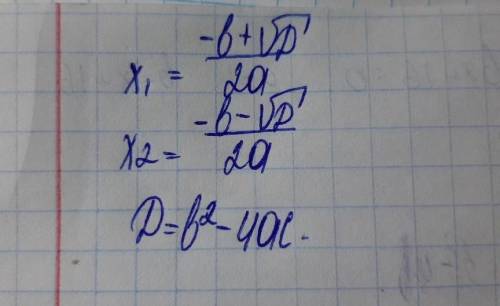 x₁ = (-b+√D)/2a
x2 = (-b-√D)/2a
D=b²-4ac.